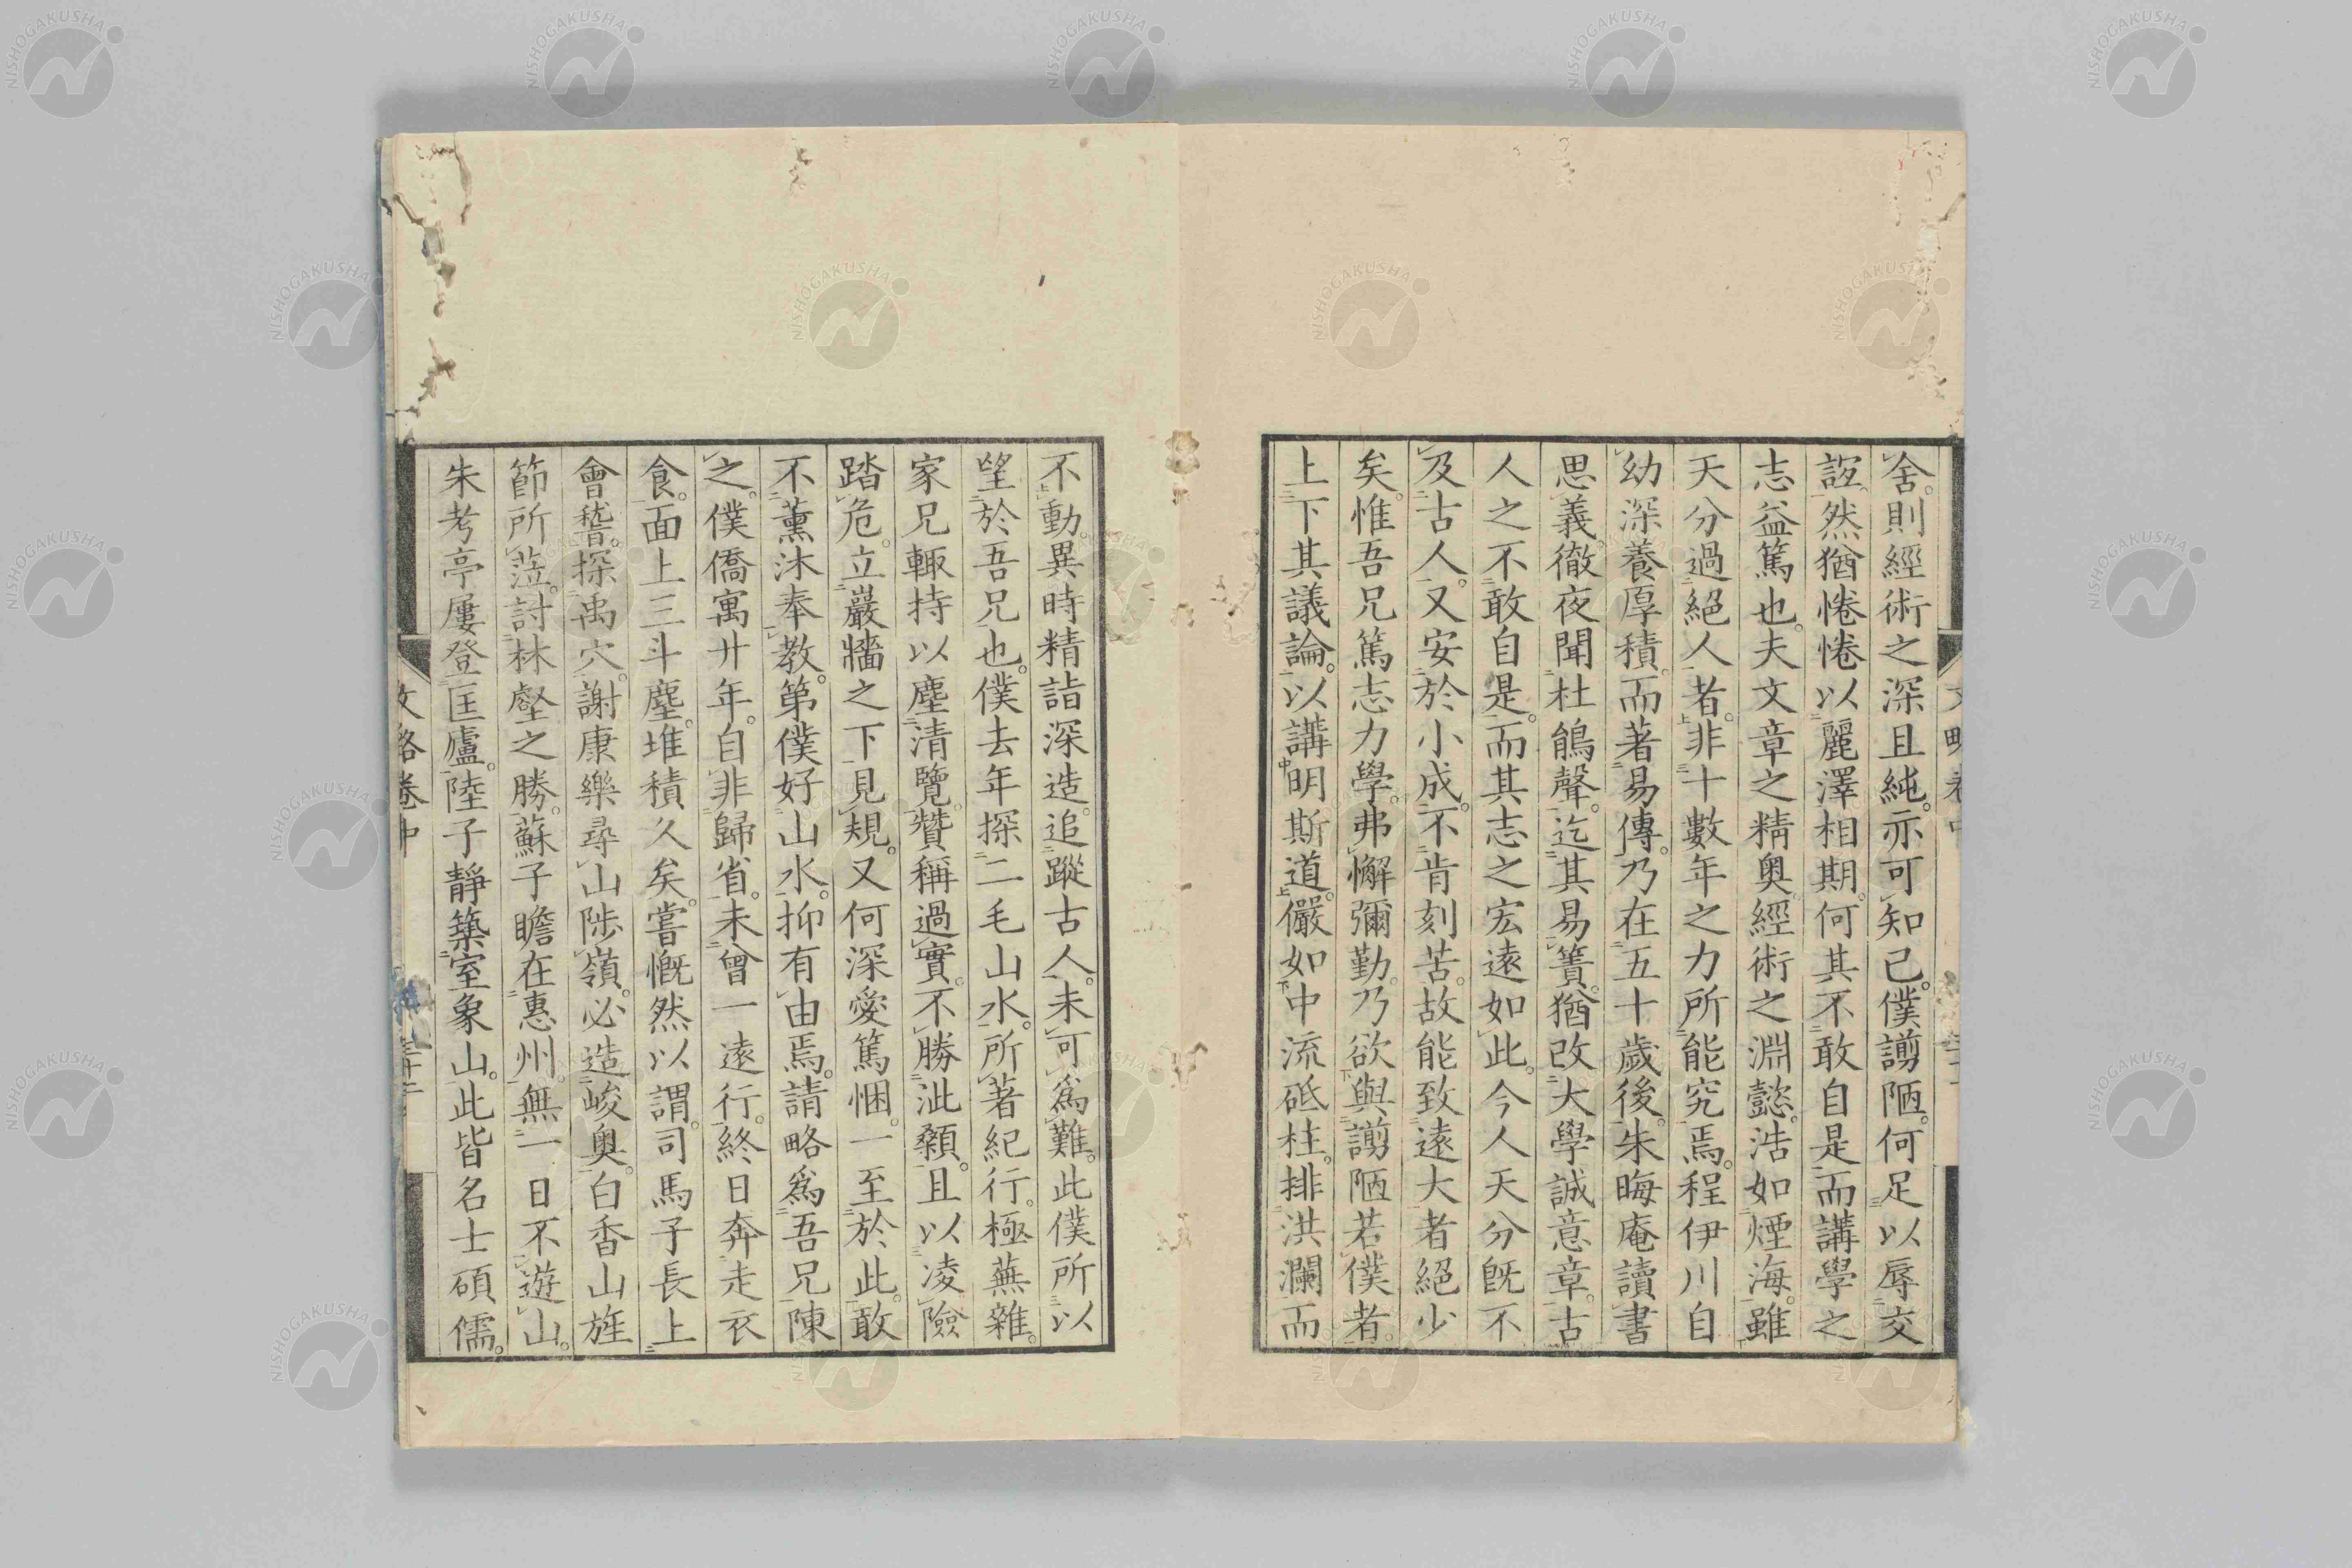 舍。則經術之深且純。亦可知已。僕謭陋。何足以辱交
誼。然猶惓惓以麗澤相期。何其不敢自是。而講學之
志益篤也。夫文章之精奧。經術之淵懿。浩如煙海。雖
天分過絕人者。非十數年之力所能究焉。程伊川自
幼深養厚積。而著易傳。乃在五十歲後。朱晦庵讀書
思義。徹夜聞杜鵑聲。迄其易簀。猶改大學誠意章。古
人之不敢自是。而其志之宏遠如此。今人天分既不
及古人。又安於小成。不肯刻苦。故能致遠大者絕少
矣。惟吾兄篤志力學。弗懈彌勤。乃欲與謭陋若僕者。
上下其議論。以講明斯道。儼如中流砥柱。排洪瀾而
不動。異時精詣深造。追蹤古人。未可為難。此僕所以
望於吾兄也。僕去年探二毛山水。所著紀行。極蕪雜。
家兄輙持以塵清覽。贊稱過實。不勝泚顙。且以凌險
踏危。立巖牆之下見規。又何深愛篤悃。一至於此。敢
不薰沐奉教。第僕好山水。抑有由焉。請略為吾兄陳
之。僕僑寓廿年。自非歸省。未曾一遠行。終日奔走衣
食。面上三斗塵。堆積久矣。嘗慨然以謂。司馬子長上
會稽。探禹穴。謝康樂尋山陟嶺。必造峻奧。白香山旌
節所涖。討林壑之勝。蘇子瞻在惠州。無一日不遊山。
朱考亭屢登匡廬。陸子靜築室象山。此皆名士碩儒。
文略卷中